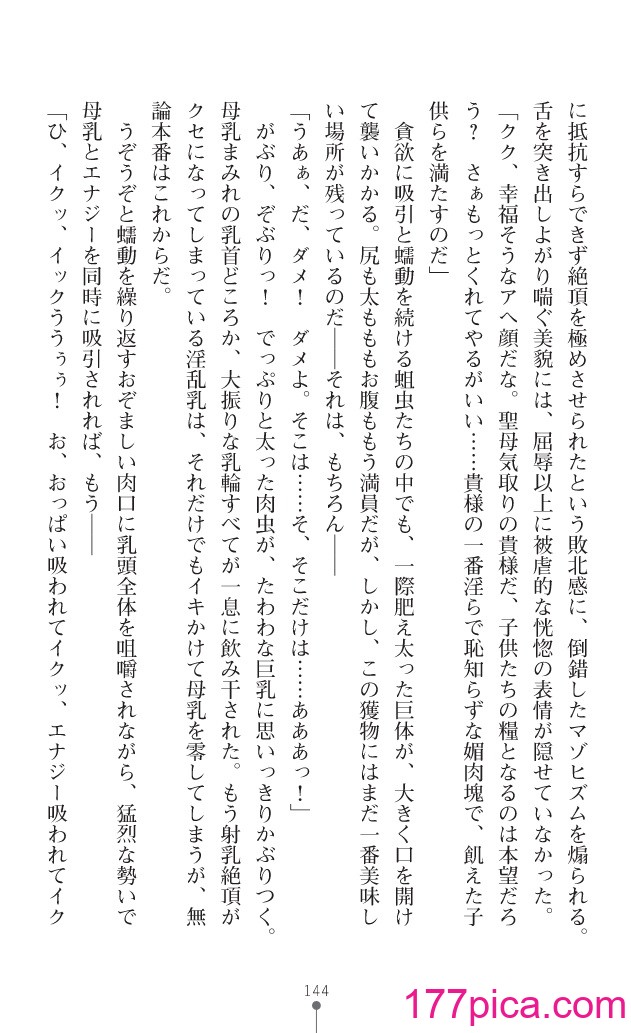 に抵抗すらできず絶頂を極めさせられたという敗北感に、倒錯したマゾヒズムを煽られる。
舌を突き出しよがり喘ぐ美貌には、屈辱以上に被虐的な恍惚の表情が隠せていなかった。
「クク、幸福そうなアヘ顔だな。聖母気取りの貴様だ、子供たちの糧となるのは本望だろ
う?　さぁもっとくれてやるがいい……貴様の一番淫らで恥知らずな媚肉塊で、飢えた子
供らを満たすのだ」
　貪欲に吸引と蠕動を続ける蛆虫たちの中でも、一際肥え太った巨体が、大きく口を開け
て襲いかかる。尻も太ももお腹ももう満員だが、しかし、この獲物にはまだ一番美味し
い場所が残っているのだ――それは、もちろん――
「うあぁ、だ、ダメ!　ダメよ。そこは……そ、そこだけは……あああっ!」
　がぶり、ぞぶりっ!　でっぷりと太った肉虫が、たわわな巨乳に思いっきりかぶりつく。
母乳まみれの乳首どころか、大振りな乳輪すべてが一息に飲み干された。もう射乳絶頂が
クセになってしまっている淫乱乳は、それだけでもイキかけて母乳を零してしまうが、無
論本番はこれからだ。
　うぞうぞと蠕動を繰り返すおぞましい肉口に乳頭全体を咀嚼されながら、猛烈な勢いで
母乳とエナジーを同時に吸引されれば、もう――
「ひ、イクッ、イックううぅぅ!　お、おっぱい吸われてイクッ、エナジー吸われてイク
144
177pica.com